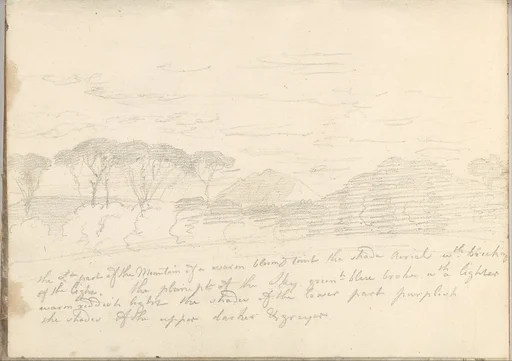 the lt part of the Mountain of a warm bloomy tint the shade Aerial wth
of the light. the plain pt of the Sky green blue broken wth lighter
warm light the shades of the lower part purplish
the shades of the upper darker & grayer